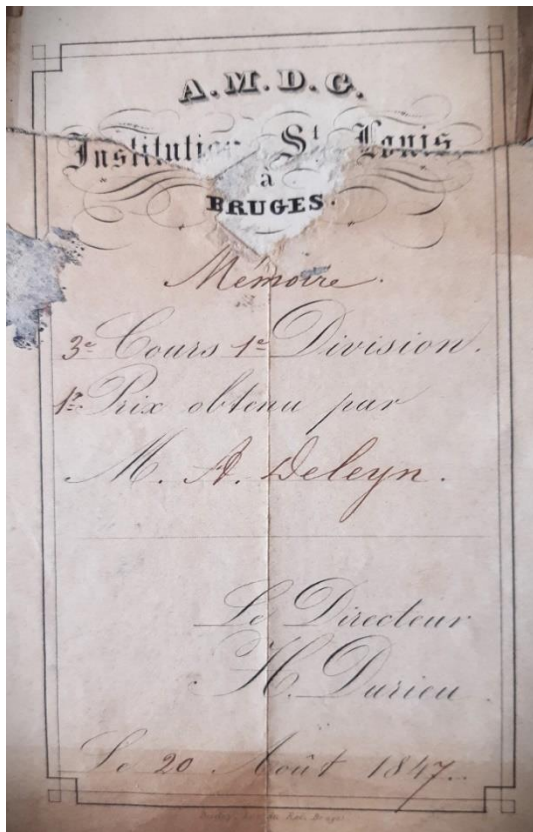 A.M.D.G.
Institution St Louis
à
BRUGES.
Mémoire.
3e Cours 1e Division.
1r Prix obtenu par
M. A. Deleyn.
Le Directeur
H. Durieu
Le 20 Août 1847.